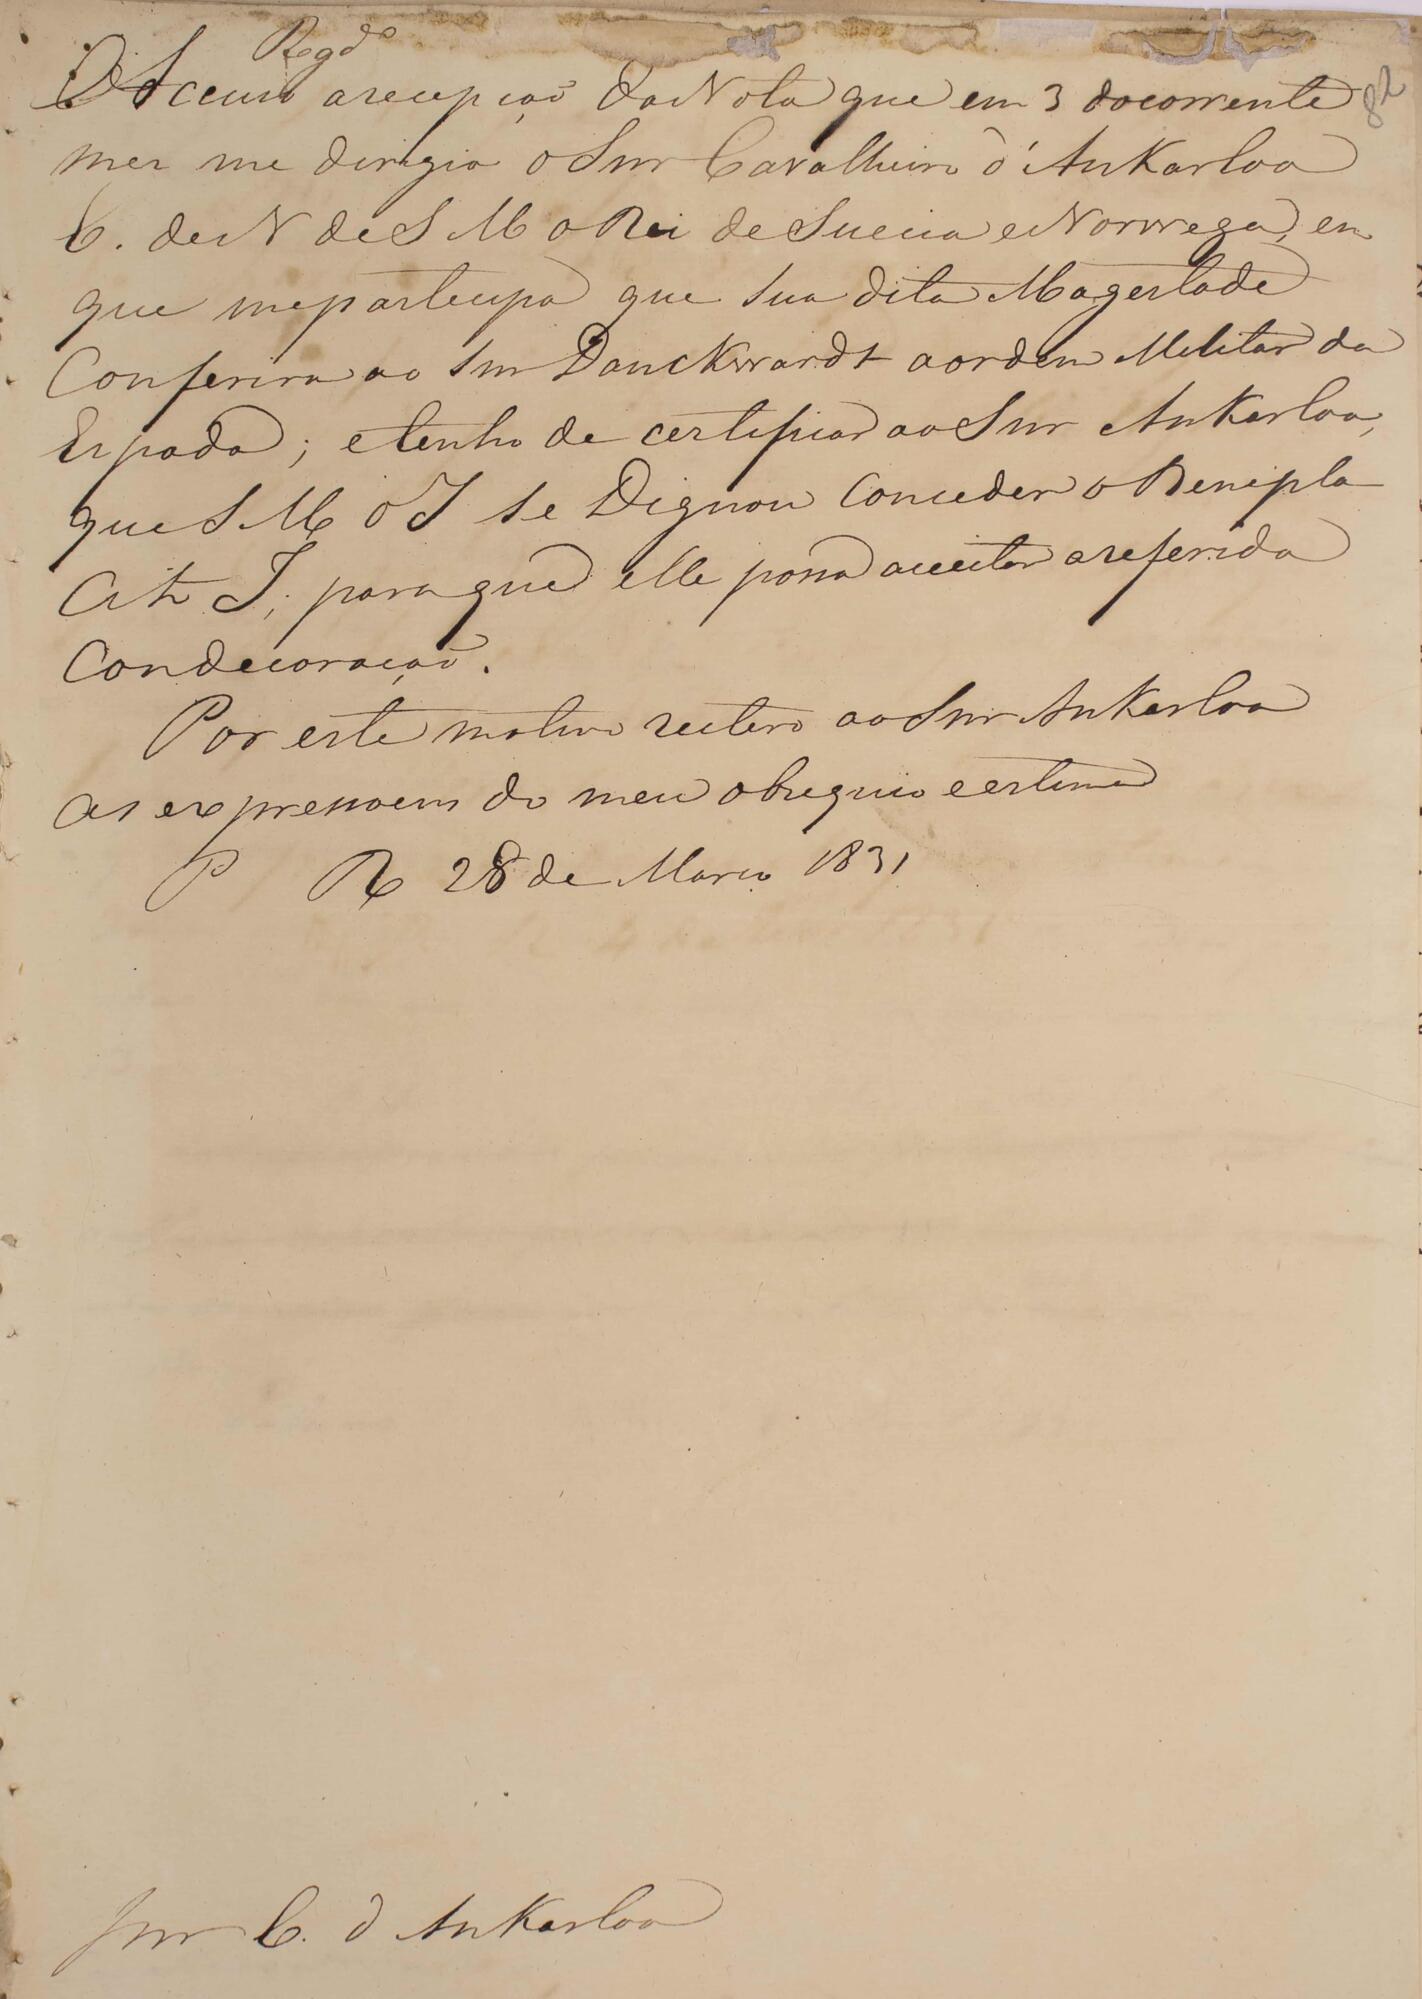 Regdo
Accuso a recepçaõ da Nota que em 3 do corrente
82
mez me dirigio o Snr Cavalheiro d'Ankarloa
E. de N de S M o Rei de Suecia e Norwega, em
que me partecipa que Sua dita Magestade
Conferira ao Snr Danckwardt a ordem Militar da
Espada; e tenho de certeficar ao Snr Ankarloa,
que S M o I se Dignou Conceder o Benepla
cito I, para que elle possa acceitar a referida
Condecoraçaõ.
Por este motivo reitero ao Snr Ankarloa
as expressoens do meu obsequio e estima
P R 28 de Março 1831
Snr C. d Ankarloa